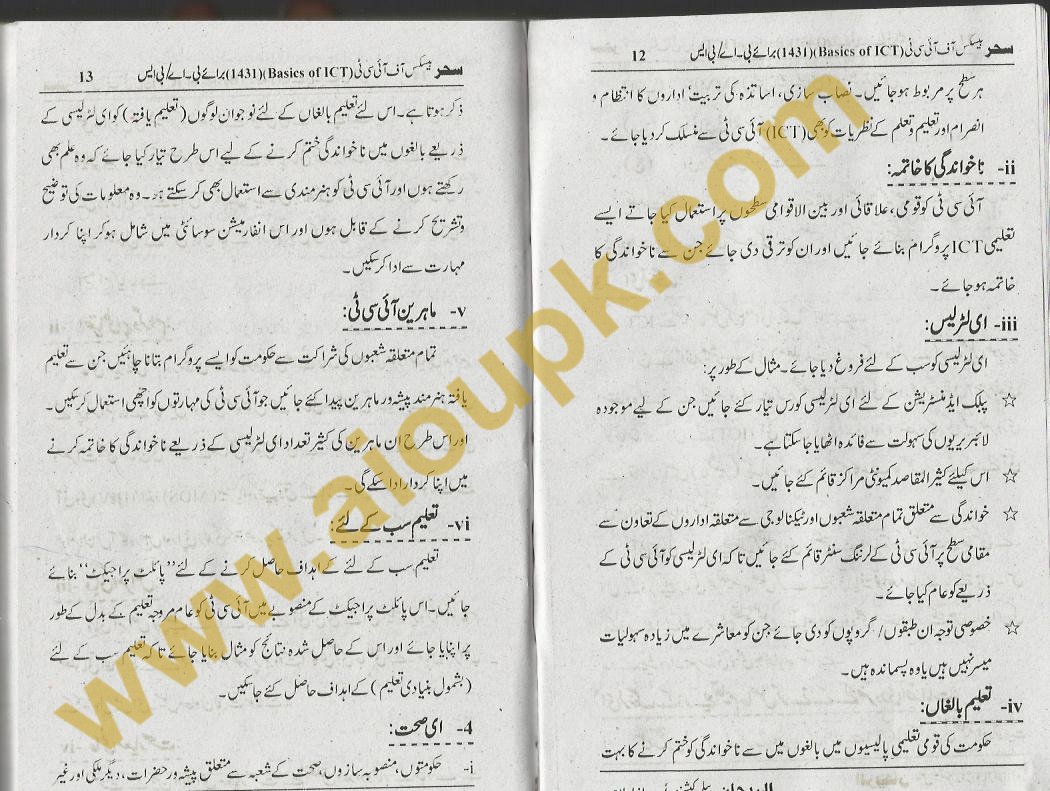 سحر بیسکس آف آئی سی ٹی (Basics of ICT)(1431) برائے بی۔اے/بی ایس 12
ہر سطح پر مربوط ہو جائیں۔ نصاب سازی، اساتذہ کی تربیت، اداروں کا انتظام و
انصرام اور تعلیم و تعلم کے نظریات کو بھی (ICT) آئی سی ٹی سے منسلک کر دیا جائے۔
ii- ناخواندگی کا خاتمہ:
آئی سی ٹی کو قومی، علاقائی اور بین الاقوامی سطحوں پر استعمال کیا جائے ایسے
تعلیمی ICT پروگرام بنائے جائیں اور ان کو ترقی دی جائے جن سے ناخواندگی کا
خاتمہ ہو جائے۔
iii- ای لٹریسی:
ای لٹریسی کو سب کے لئے فروغ دیا جائے۔ مثال کے طور پر:
☆ پبلک ایڈمنسٹریشن کے لئے ای لٹریسی کورس تیار کئے جائیں جن کے لیے موجودہ
لائبریریوں کی سہولت سے فائدہ اٹھایا جا سکتا ہے۔
☆ اس کیلئے کثیر المقاصد کمیونٹی مراکز قائم کئے جائیں۔
☆ خواندگی سے متعلق تمام متعلقہ شعبوں اور ٹیکنالوجی سے متعلقہ اداروں کے تعاون سے
مقامی سطح پر آئی سی ٹی کے لرننگ سنٹر قائم کئے جائیں تاکہ ای لٹریسی کو آئی سی ٹی کے
ذریعے کو عام کیا جائے۔
☆ خصوصی توجہ ان طبقوں/گروپوں کو دی جائے جن کو معاشرے میں زیادہ سہولیات
میسر نہیں ہیں یا وہ پسماندہ ہیں۔
iv- تعلیم بالغاں:
حکومت کی قومی تعلیمی پالیسیوں میں بالغوں میں سے ناخواندگی کو ختم کرنے کا بہت
سحر بیسکس آف آئی سی ٹی (Basics of ICT)(1431) برائے بی۔اے/بی ایس 13
ذکر ہوتا ہے۔ اس لئے تعلیم بالغاں کے لئے نوجوان لوگوں (تعلیم یافتہ) کو ای لٹریسی کے
ذریعے بالغوں میں ناخواندگی ختم کرنے کے لیے اس طرح تیار کیا جائے کہ وہ علم بھی
رکھتے ہوں اور آئی سی ٹی کو ہنرمندی سے استعمال بھی کر سکتے ہوں۔ وہ معلومات کی توضیح
و تشریح کرنے کے قابل ہوں اور اس انفارمیشن سوسائٹی میں شامل ہو کر اپنا کردار
مہارت سے ادا کر سکیں۔
v- ماہرین آئی سی ٹی:
تمام متعلقہ شعبوں کی شراکت سے حکومت کو ایسے پروگرام بنانا چاہئیں جن سے تعلیم
یافتہ ہنرمند پیشہ ور ماہرین پیدا کئے جائیں جو آئی سی ٹی کی مہارتوں کو اچھی استعمال کر سکیں۔
اور اس طرح ان ماہرین کی کثیر تعداد ای لٹریسی کے ذریعے ناخواندگی کا خاتمہ کرنے
میں اپنا کردار ادا سکے گی۔
vi- تعلیم سب کے لئے:
تعلیم سب کے لئے کے اہداف حاصل کرنے کے لئے "پائلٹ پراجیکٹ" بنائے
جائیں۔ اس پائلٹ پراجیکٹ کے منصوبے میں آئی سی ٹی کو عام مروجہ تعلیم کے بدل کے طور
پر اپنایا جائے اور اس کے حاصل شدہ نتائج کو مثال بنایا جائے تاکہ تعلیم سب کے لئے
(بشمول بنیادی تعلیم) کے اہداف حاصل کئے جا سکیں۔
4- ای صحت:
i- حکومتوں، منصوبہ سازوں، صحت کے شعبہ سے متعلق پیشہ ور حضرات، دیگر ملکی اور غیر
www.aioupk.com